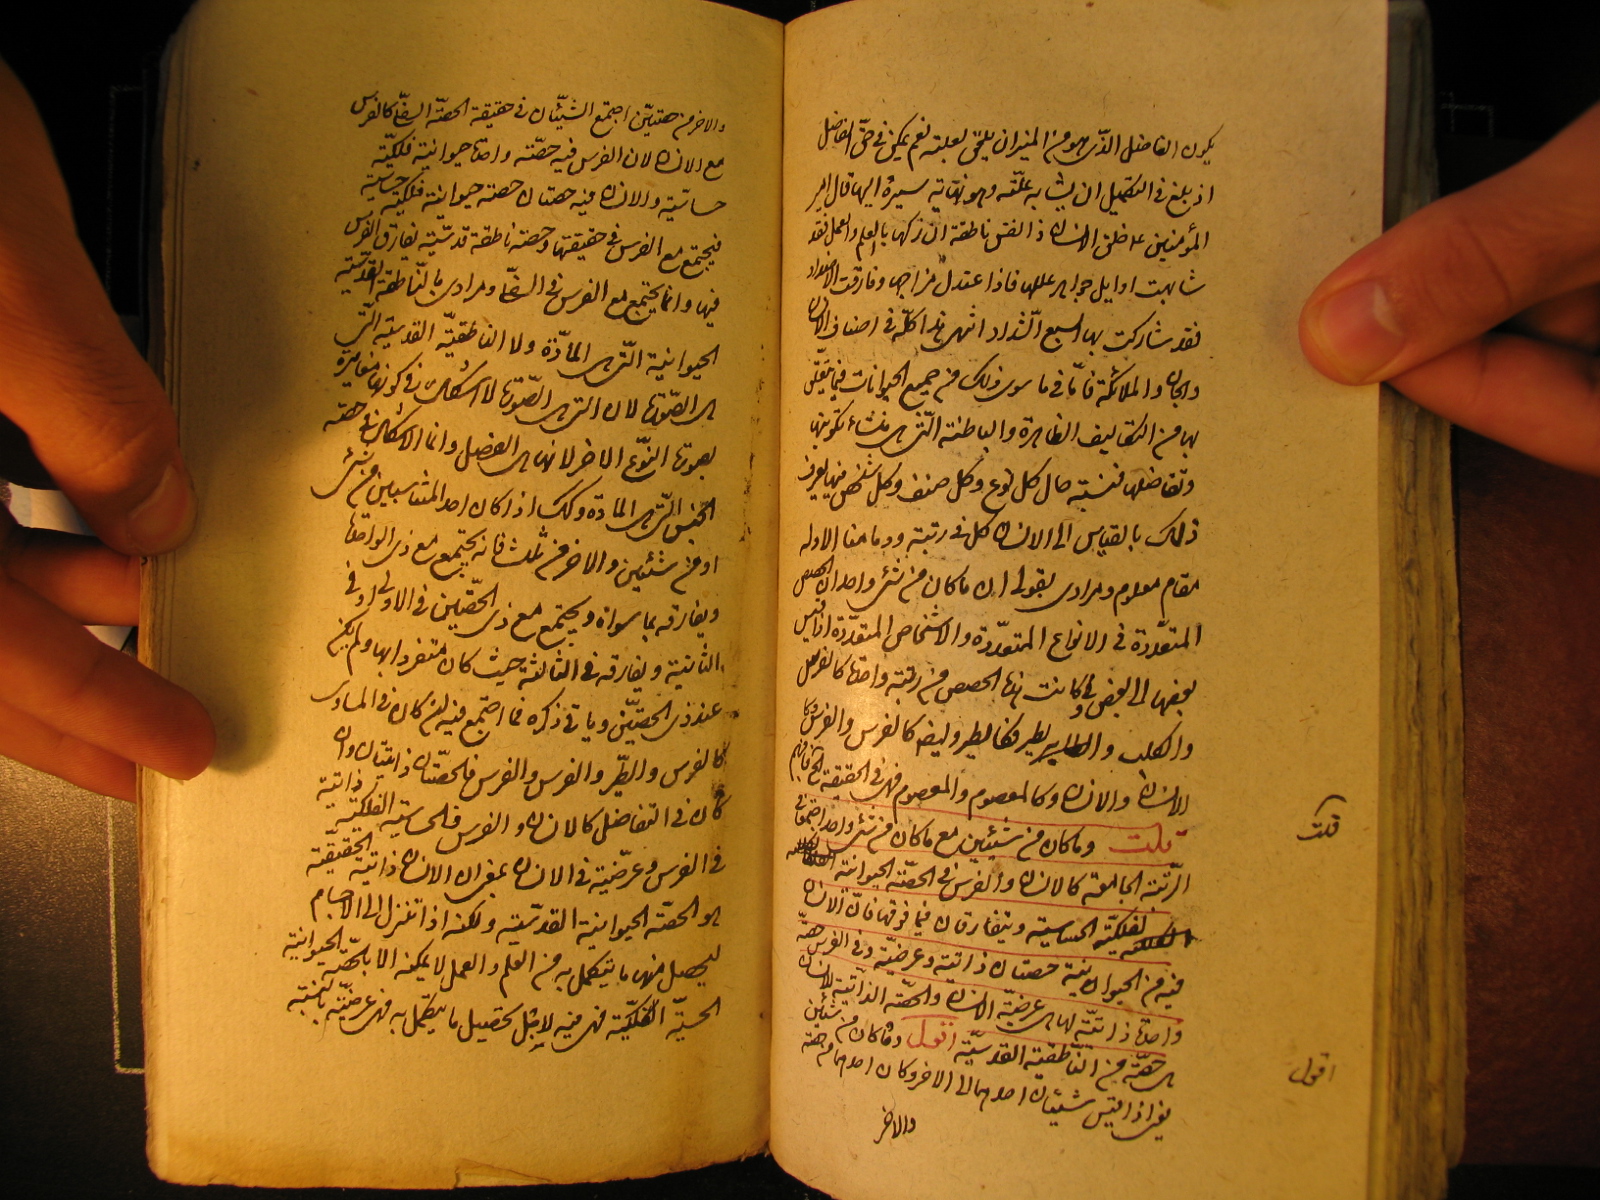 يكون الفاضل الذي هو من الميزان يلحق بعلته نعم يمكن في حق الفاضل
اذ بلغ في التكميل ان يشابه علته وهو نهاية سيره اليها قال امير
المؤمنين ع خلق الانسان ذا نفس ناطقة ان زكيها بالعلم والعمل فقد
شابهت اوايل جواهر عللها فاذا اعتدل مزاجها وفارقت الاضداد
فقد شارك بها السبع الشداد انتهى هذا كله في اصناف الانسان
والجان والملائكة فامّا في ما سوى ذلك من جميع الحيوانات فيما يتعلق
بها من التكاليف الظاهرة والباطنة التي هي منشاء تكوينها
وتفاضلها فنسبة حال كل نوع وكل صنف وكل شخص فيها يعرف
ذلك بالقياس الى الانسان كل في رتبة وما منا الا وله
مقام معلوم ومرادي بقولي ان ما كان من شئ واحد ان الحصص
المتعددة في الانواع المتعددة والاشخاص المتعددة اذا قيس
بعضها الى بعض وكانت هذه الحصص من رتبة واحدة كالفرس
والكلب والطير فكالطير وليضه كالفرس والفرس وكا
الانسان والانسان وكالمعصوم والمعصوم فهي في الحقيقة الخ فافهم
قلت وما كان من شيئين مع ما كان من شئ واحد اجتمعا في
الرتبة الجامعة كالانسان والفرس في الحصة الحيوانية
الفلكية الحساسية ويتفارقان فيما فوقها فان الانسان
فيه من الحيوانية حصتان ذاتية وعرضية وفي الفرس حصة
واحدة ذاتية لها هي عرضية الانسان والحصة الذاتية للانسان
هي حصة من الناطقية القدسية اقول وما كان من شيئين
يعني اذا قيس شيئان احدهما الى الاخر وكان احدهما من حصة
والاخر
قلت
اقول
والاخر من حصتين اجتمع الشيئان في حقيقة الحصة السفلى كالفرس
مع الانسان لان الفرس فيه حصة واحدة حيوانية فلكية
حساسية والانسان فيه حصتان حصة حيوانية فلكية حسية
فيجتمع مع الفرس في حقيقتها وحصة ناطقة قدسية يفارق الفرس
فيها وانما يجتمع مع الفرس في السفلى ومرادي بالناطقة القدسية
الحيوانية التي هي المادة ولا الناطقية القدسية التي
هي الصورة لان التي هي الصورة لا اشكال في كونها مغايرة
لصورة النوع الاخر لانها هي الفصل وانما الاشكال في حصة
الجنس التي هي المادة وكذلك اذا كان احد المتناسبين من شئ
او من شئين والاخر من ثلث فانه يجتمع مع ذي الواحدة
ويفارقه بما سواه ويجتمع مع ذي الحصتين في الاولى او في
الثانية ويفارقه في الثالثة حيث كان متفردا بها ولم يكن
عند ذي الحصتين وياتي ذكره فما اجتمع فيه ان كان في المساوى
كالفرس والطير والفرس والفرس فالحصتان ذاتيتان وان
كان في التفاضل كالانسان والفرس فالحساسية الفلكية ذاتية
في الفرس وعرضية في الانسان بمعنى ان الانسان ذاتيته الحقيقية
هو الحصة الحيوانية القدسية ولكنه اذا تنزل الى الاجسام
ليحصل منها ما يتكمل به من العلم والعمل لا يمكنه الا بالحصة الحيوانية
الحسية الفلكية فهي فيه لاجل تحصيل ما يتكمل به فهي عرضية بالنسبة